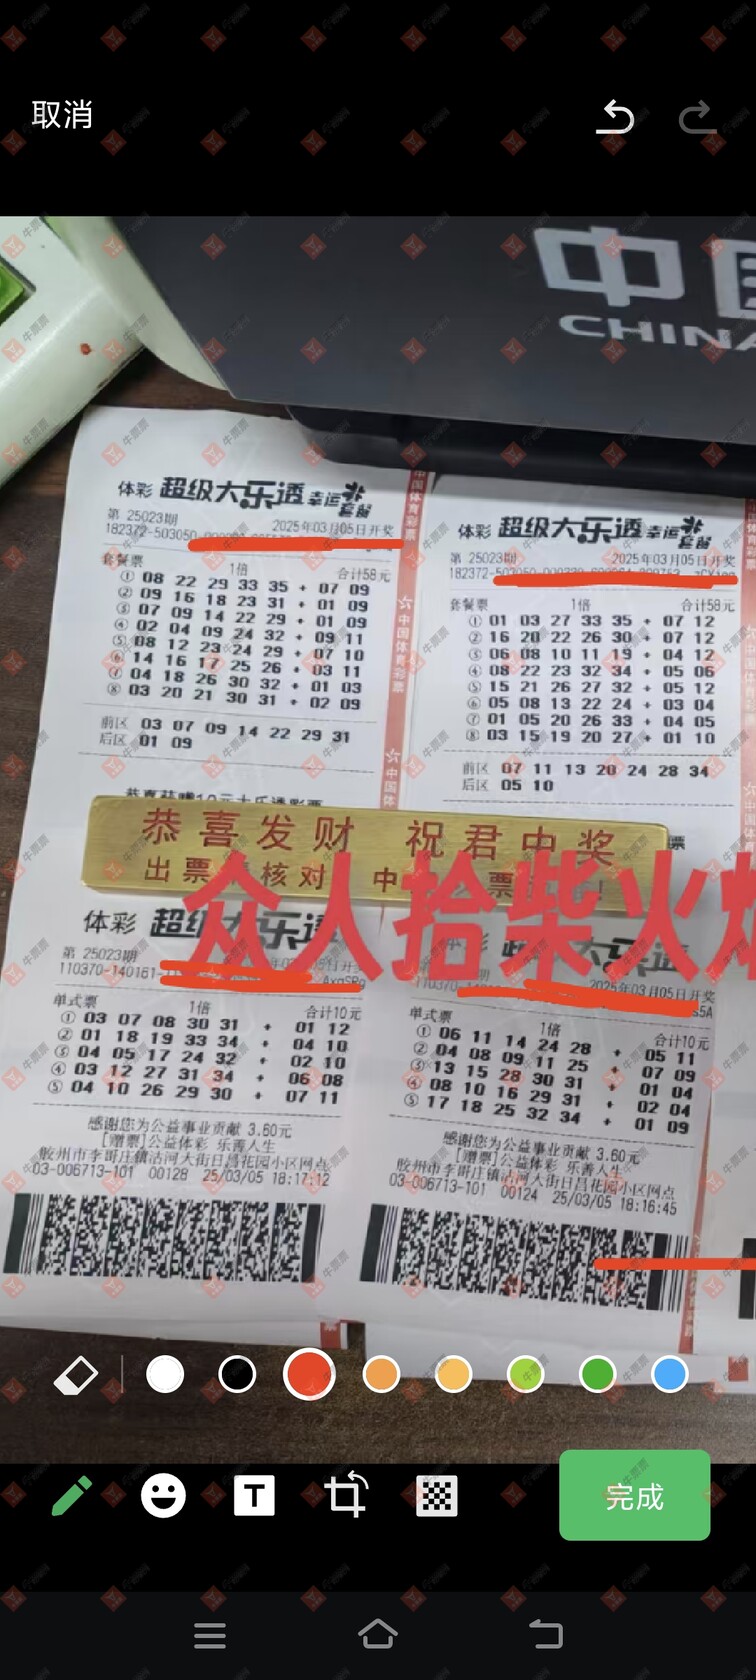 取消
中国
CHINA
体彩 超级大乐透 幸运 套餐
第 25023期 2025年03月05日开奖
182372-503050
套餐票 1倍 合计58元
① 08 22 29 33 35 + 07 09
② 09 16 18 23 31 + 01 09
③ 07 09 14 22 29 + 01 09
④ 02 04 09 24 32 + 09 11
⑤ 08 12 23 24 29 + 07 10
⑥ 14 16 17 25 26 + 03 11
⑦ 04 18 26 30 32 + 01 03
⑧ 03 20 21 30 31 + 02 09
前区 03 07 09 14 22 29 31
后区 01 09
体彩 超级大乐透 幸运 套餐
第 25023期 2025年03月05日开奖
182372-503050
套餐票 1倍 合计58元
① 01 03 27 33 35 + 07 12
② 16 20 22 26 30 + 07 12
③ 06 08 10 11 19 + 04 12
④ 08 22 23 32 34 + 05 06
⑤ 15 21 26 27 32 + 05 12
⑥ 05 08 13 22 24 + 03 04
⑦ 01 05 20 26 33 + 04 05
⑧ 03 15 19 20 27 + 01 10
前区 07 11 13 20 24 28 34
后区 05 10
中国体育彩票
恭喜发财 祝君中奖
出票 核对 中 票
众人拾柴火焰
体彩 超级大乐透
第 25023期
110370-140161
单式票 1倍 合计10元
① 03 07 08 30 31 + 01 12
② 01 18 19 33 34 + 04 10
③ 04 05 17 24 32 + 02 10
④ 03 12 27 31 34 + 06 08
⑤ 04 10 26 29 30 + 07 11
感谢您为公益事业贡献 3.60元
[赠票]公益体彩 乐善人生
胶州市李哥庄镇沽河大街日昌花园小区网点
03-006713-101 00128 25/03/05 18:17:12
2025年03月05日开奖
110370
单式票 1倍 合计10元
① 06 11 14 24 28 + 05 11
② 04 08 09 11 25 + 07 09
③ 13 15 28 30 31 + 01 04
④ 08 10 16 29 31 + 02 04
⑤ 17 18 25 32 34 + 01 09
感谢您为公益事业贡献 3.60元
[赠票]公益体彩 乐善人生
胶州市李哥庄镇沽河大街日昌花园小区网点
03-006713-101 00124 25/03/05 18:16:45
T
完成